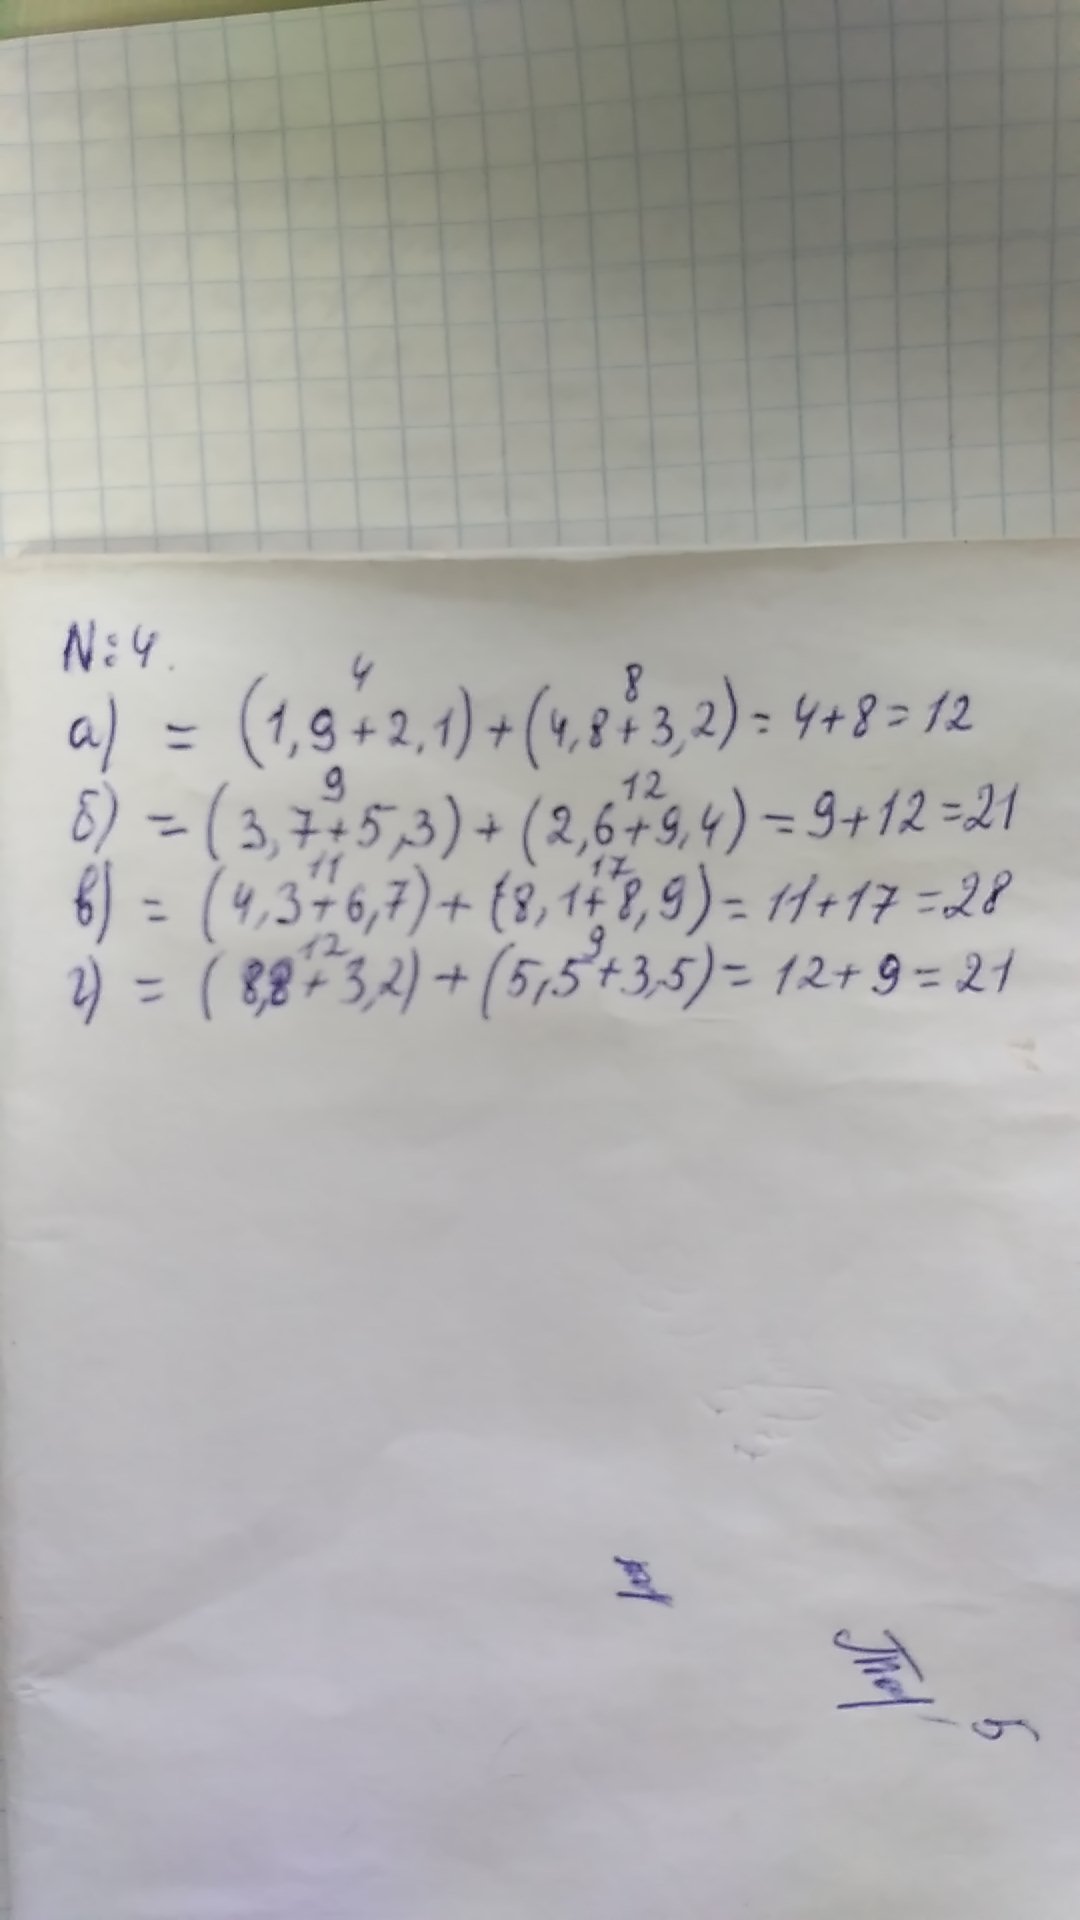 N:4.
4 8
а) = (1,9+2,1)+(4,8+3,2)=4+8=12
9 12
б) =(3,7+5,3)+(2,6+9,4)=9+12=21
11 17
в) = (4,3+6,7)+(8,1+8,9)=11+17=28
12 9
г) = (8,8+3,2)+(5,5+3,5)=12+9=21